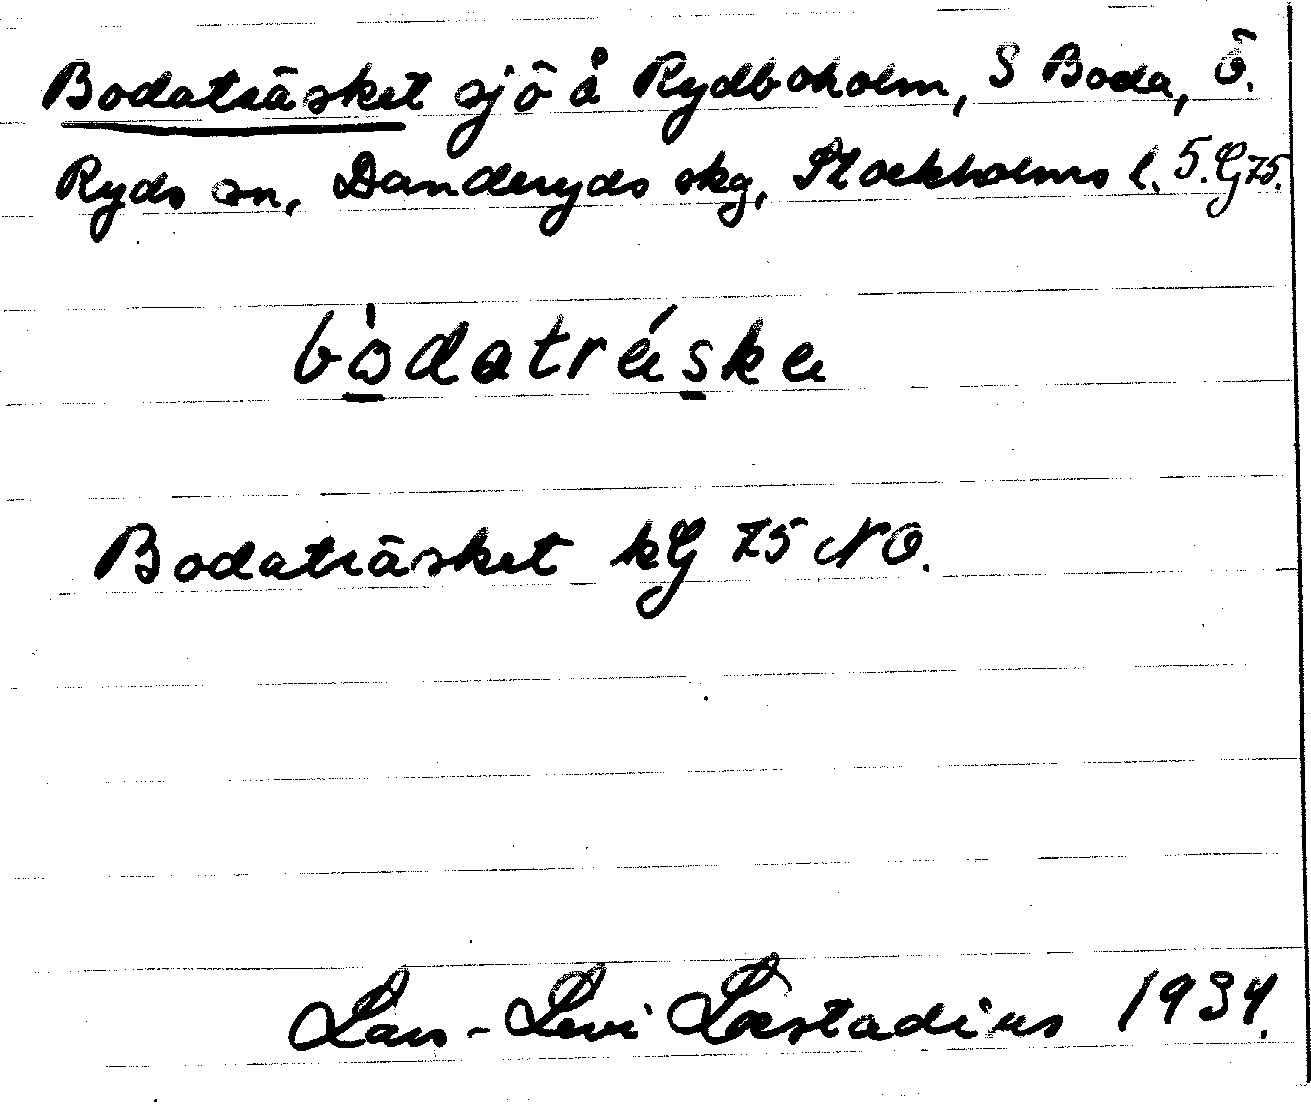 Bodaträsket sjö å Rydboholm, S Boda, Ö.
Ryds sn, Danderyds skg, Stockholms l. 5.G75.
bòdatráska
Bodaträsket kG 75 NO.
Lars-Levi Læstadius 1934.